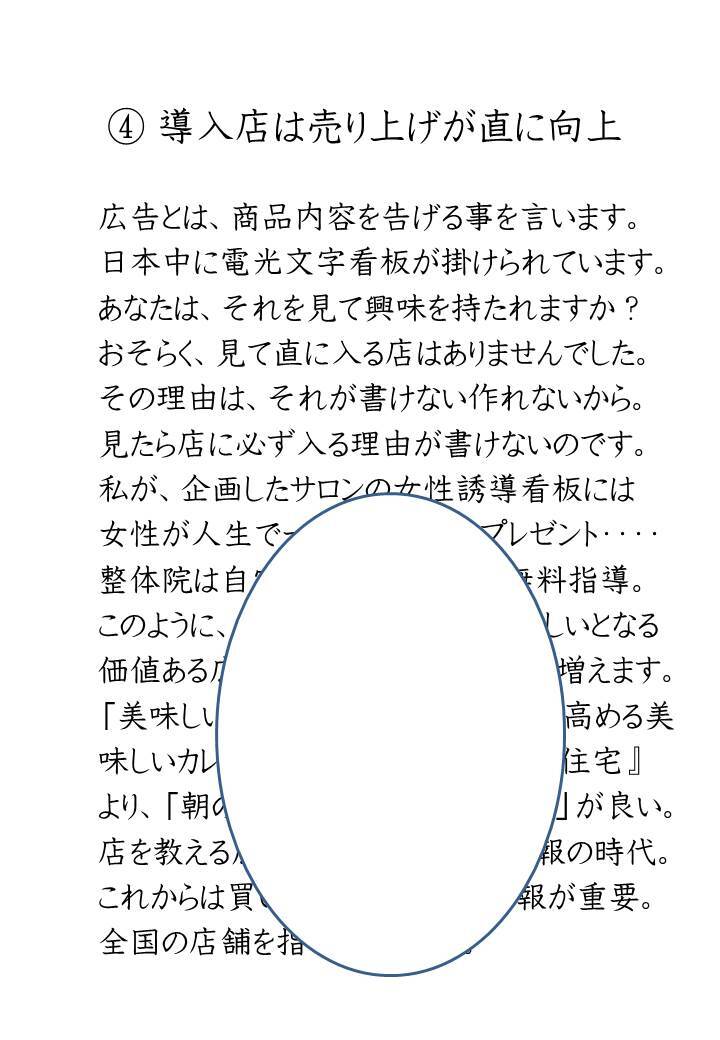 ④ 導入店は売り上げが直に向上
広告とは、商品内容を告げる事を言います。
日本中に電光文字看板が掛けられています。
あなたは、それを見て興味を持たれますか？
おそらく、見て直に入る店はありませんでした。
その理由は、それが書けない作れないから。
見たら店に必ず入る理由が書けないのです。
私が、企画したサロンの女性誘導看板には
女性が人生で プレゼント‥‥
整体院は自 無料指導。
このように、 しいとなる
価値ある 増えます。
「美味しい 高める美
味しいカレ 住宅』
より、「朝の 」が良い。
店を教える 報の時代。
これからは買い 報が重要。
全国の店舗を指 。